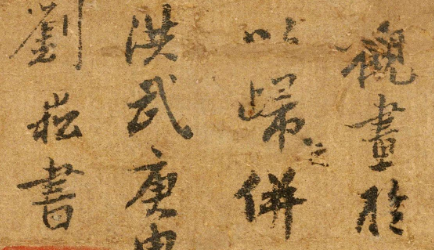 觀畫於
以歸之併
洪武庚申
劉崧書